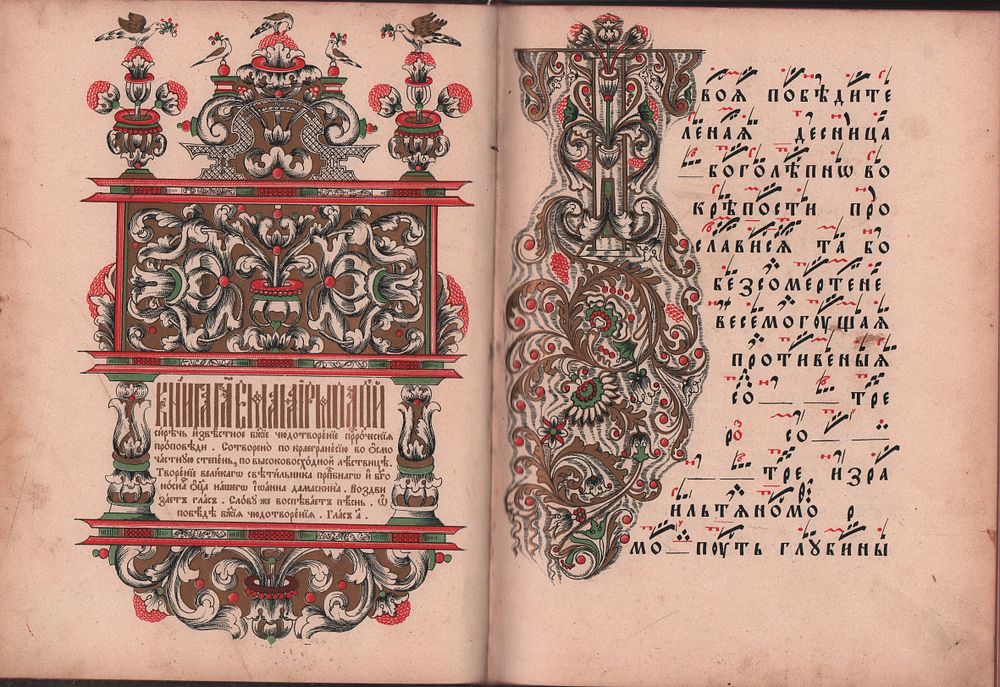 КНИГА ГЛ҃ЕМАѦ ІРМОЛОГІЙ
сирѣчь и҆звѣстное бж҃їе чюдотворе́нїе прⷪ҇ро́ческїѧ
про́повѣди . Сотворено по краегране́сїю во ѻ҆смо
частную степень, по высоковосхо́дной лѣ́ствицѣ .
Творе́нїе вели́кагѡ свѣти́льника прпⷣбнагѡ и҆ бг҃о
но́снагѡ ѻ҆ц҃а нашегѡ і҆ѡа́нна дамаскина . Воздви
заетъ гласъ . Сло́ву же воспѣваетъ пѣ́снь . ѡ҆
побѣ́дѣ бж҃їѧ чюдотворе́нїѧ . Гласъ а҃ .
ВОѦ ПОБѢДИТЕ
ЛЕНАѦ ДЕСНИЦА
БОГОЛѢПНѠ ВО
КРѢПОСТИ ПРО
СЛАВИСѦ ТА БО
БЕЗСОМЕРТЕНЕ
ВЕСЕМОГꙊЩАѦ
ПРОТИВЕНЫѦ
СО ТРЕ
СО
ТРЕ ИЗРА
ИЛЬТѦНОМО
МО ПꙊТЬ ГЛꙊБИНЫ